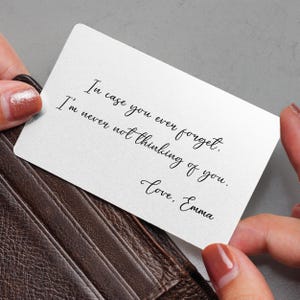 In case you ever forget.
I'm never not thinking of you.
Love, Emma